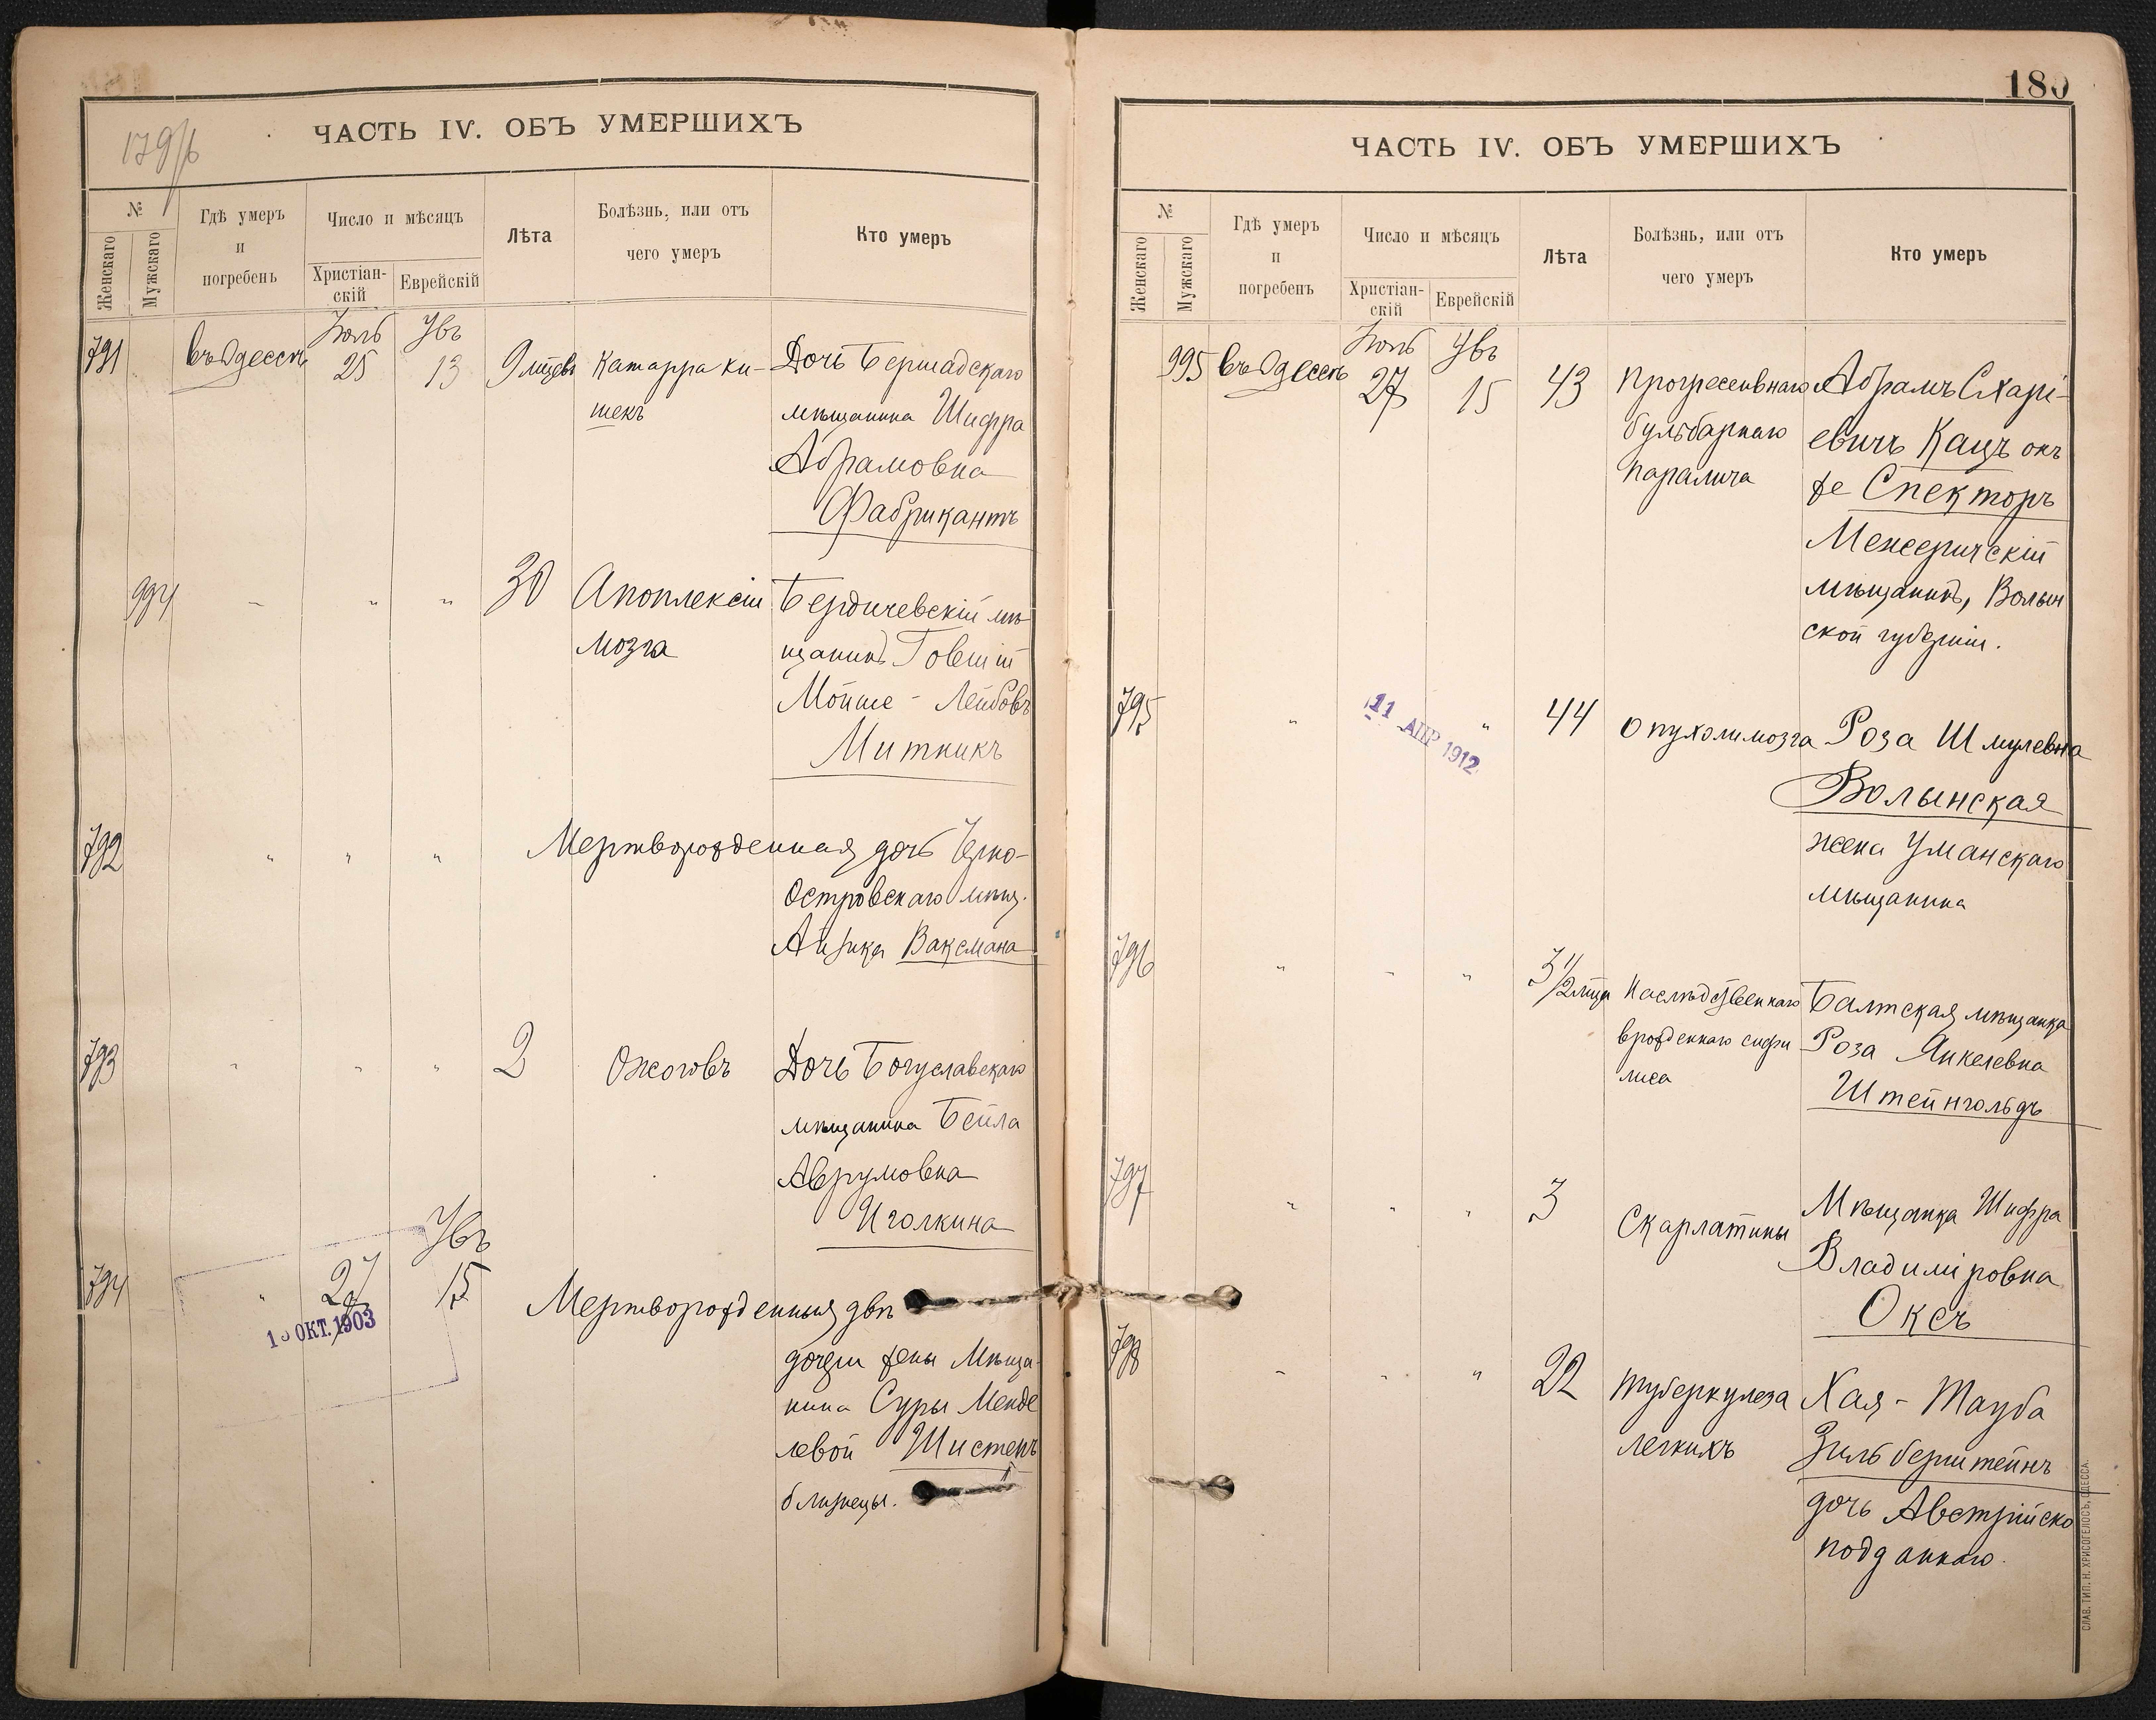 179/б
ЧАСТЬ IV. ОБЪ УМЕРШИХЪ
№
Женскаго
Мужскаго
Гдѣ умеръ
и
погребенъ
Число и мѣсяцъ
Христіан-
скій
Еврейскій
Лѣта
Болѣзнь, или отъ
чего умеръ
Кто умеръ
791 въ Одессѣ Іюль 25 Увъ 13 9 мѣсяц Катарра ки-
шекъ
Дочь Бершадскаго
мѣщанина Шифра
Абрамовна
Фабрикантъ
994 - " " 30 Апоплексіи
мозга
Бердичевскій мѣ-
щанинъ Говшій
Мойше - Лейбовъ
Митникъ
792 " " " Мертворожденная дочь Черно-
Островскаго мѣщ.
Айзика Ваксмана
793 " " " 2 Ожоговъ Дочь Богуславскаго
мѣщанина Бейла
Аврумовна
Иголкина
794 " 27 Увъ 15 Мертворожденныя двѣ
ОКТ. 1903
дочери жены Мѣща-
нина Суры Менде
левой Шистеръ
близнецы.
180
ЧАСТЬ IV. ОБЪ УМЕРШИХЪ
№
Женскаго
Мужскаго
Гдѣ умеръ
и
погребенъ
Число и мѣсяцъ
Христіан-
скій
Еврейскій
Лѣта
Болѣзнь, или отъ
чего умеръ
Кто умеръ
995 въ Одессѣ Іюль 27 Увъ 15 43 Прогресивнаго
бульбарнаго
паралича
Абрамъ Схарі-
евичъ Кацъ онъ
же Спекторъ
Межеричскій
мѣщанинъ, Волын
ской губерніи.
795 " " 44 Опухоли мозга Роза Шмулевна
11 АПР 1912
Волынская
жена Уманскаго
мѣщанина
796 " - " 3 1/2 мѣца Наслѣдственнаго
врожденнаго сифи
лиса
Балтская мѣщанка
Роза Янкелевна
Штейнгольдъ
797 " " " 3 Скарлатины Мѣщанка Шифра
Владиміровна
Оксъ
798 - " " 22 туберкулеза
легкихъ
Хая - Тауба
Зильберштейнъ
дочь Австрійско
подданнаго.
СЛАВ. ТИП. Н. ХРИСОГЕЛОСЪ, ОДЕССА.